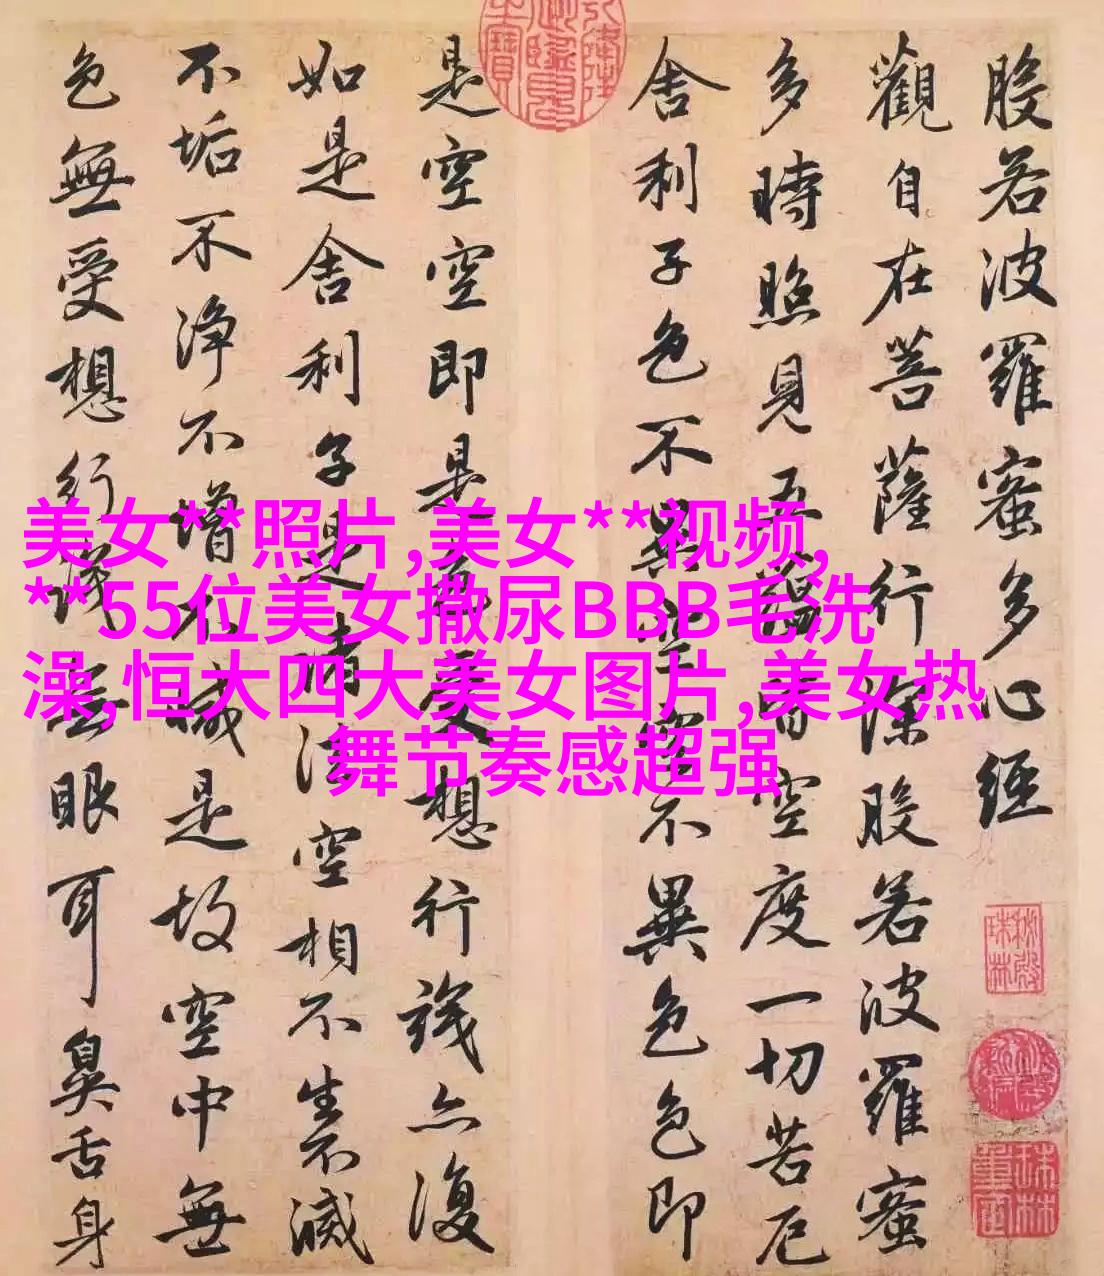 般若波羅蜜多心經
觀自在菩薩行深般若波羅蜜
多時照見五蘊皆空度一切苦厄
舍利子色不異空空不異色色即
是空空即是色受想行識亦復
如是舍利子是諸法空相不生不滅
不垢不净不增不減是故空中無
色無受想行識无眼耳鼻舌身
美女**照片,美女**视频,
**55位美女撒尿BBB毛洗
澡,恒大四大美女图片,美女热
舞节奏感超强